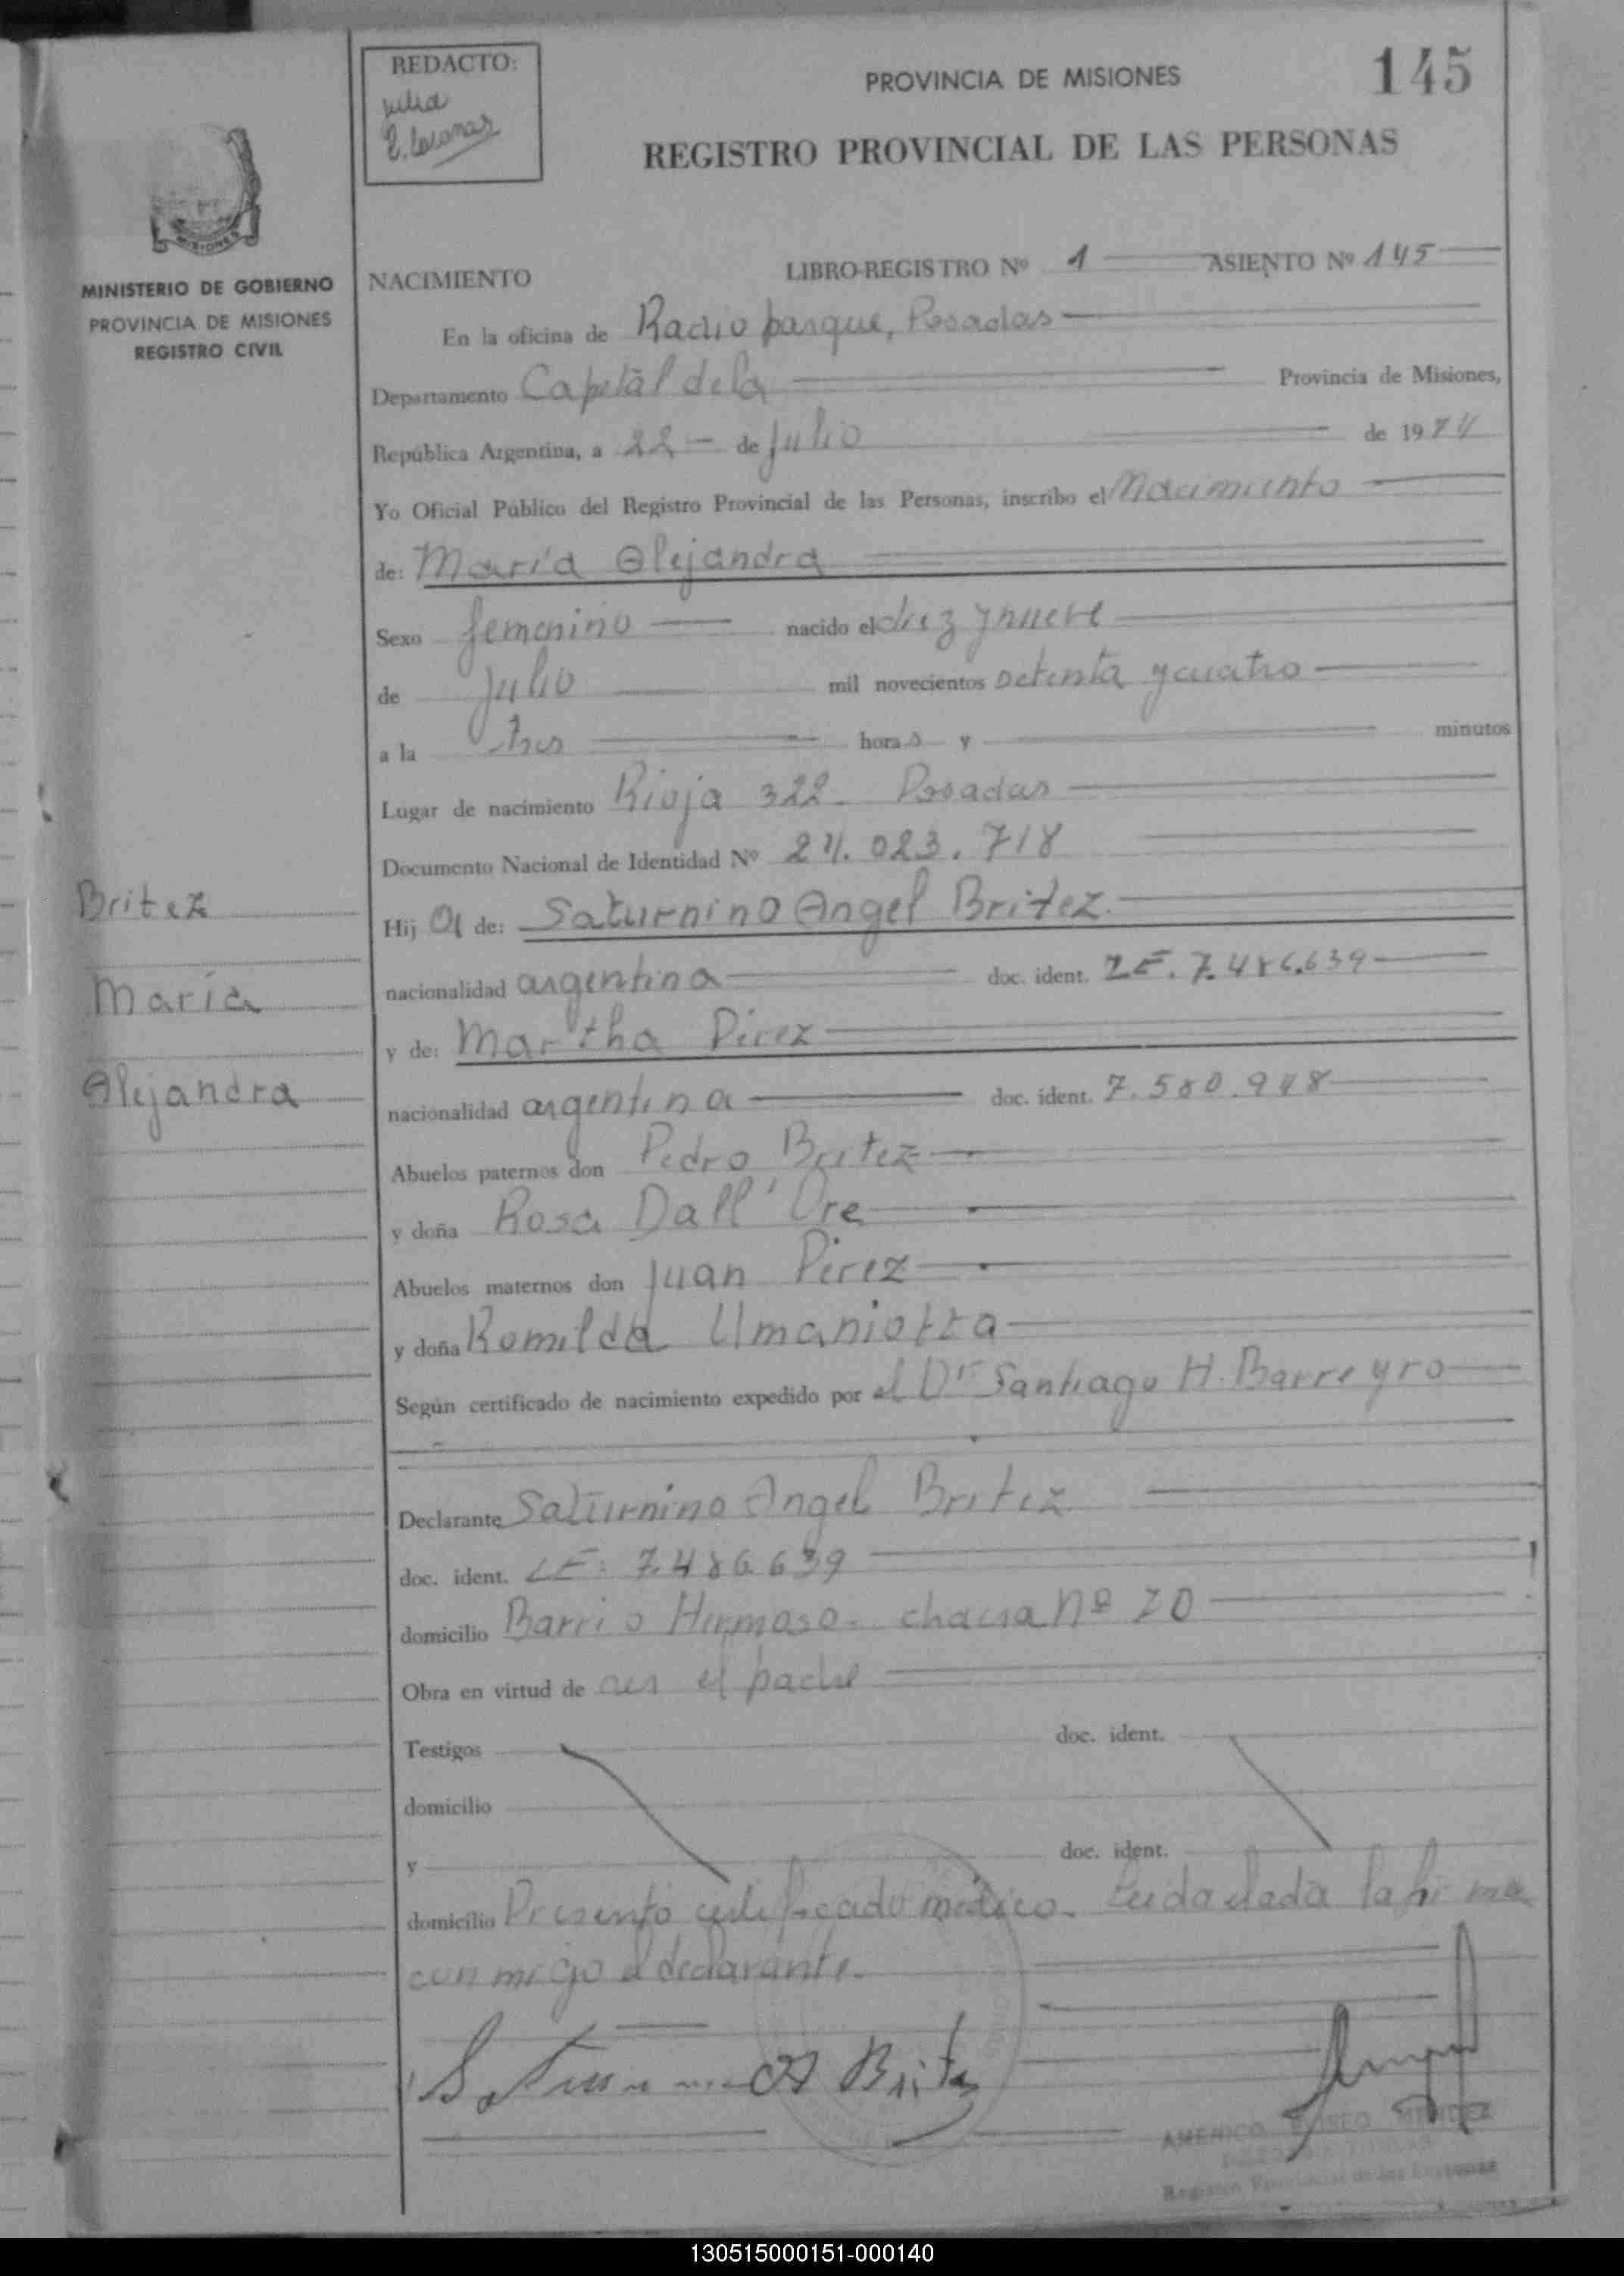 REDACTO:
PROVINCIA DE MISIONES
145
REGISTRO PROVINCIAL DE LAS PERSONAS
MISIONES
MINISTERIO DE GOBIERNO
PROVINCIA DE MISIONES
REGISTRO CIVIL
NACIMIENTO
LIBRO-REGISTRO Nº 1 ASIENTO Nº 145
En la oficina de Radio parque, Posadas
Departamento Capital de la Provincia de Misiones,
República Argentina, a 22 de Julio de 1974
Yo Oficial Público del Registro Provincial de las Personas, inscribo el Nacimiento
de: María Alejandra
Sexo femenino nacido el diez y nueve
de Julio mil novecientos setenta y cuatro
a la tres horas y minutos
Lugar de nacimiento Rioja 322 - Posadas
Documento Nacional de Identidad Nº 24.023.718
Britez
Hij a de: Saturnino Angel Britez
María
nacionalidad argentina doc. ident. LE. 7.486.639
y de: Martha Pérez
Alejandra
nacionalidad argentina doc. ident. 7.580.948
Abuelos paternos don Pedro Britez
y doña Rosa Dall' Ore
Abuelos maternos don Juan Pérez
y doña Romilda Umaniotta
Según certificado de nacimiento expedido por el Dr Santiago H. Barreyro
Declarante Saturnino Angel Britez
doc. ident. LE: 7.486.639
domicilio Barrio Hermoso - chacra nº 70
Obra en virtud de ser el padre
Testigos doc. ident.
domicilio
y doc. ident.
domicilio Presentó certificado médico. Leida el acta la firma
conmigo el declarante.
Saturnino A Britez
AMERICO ELISEO MENDEZ
Registro Provincial de las Personas
130515000151-000140